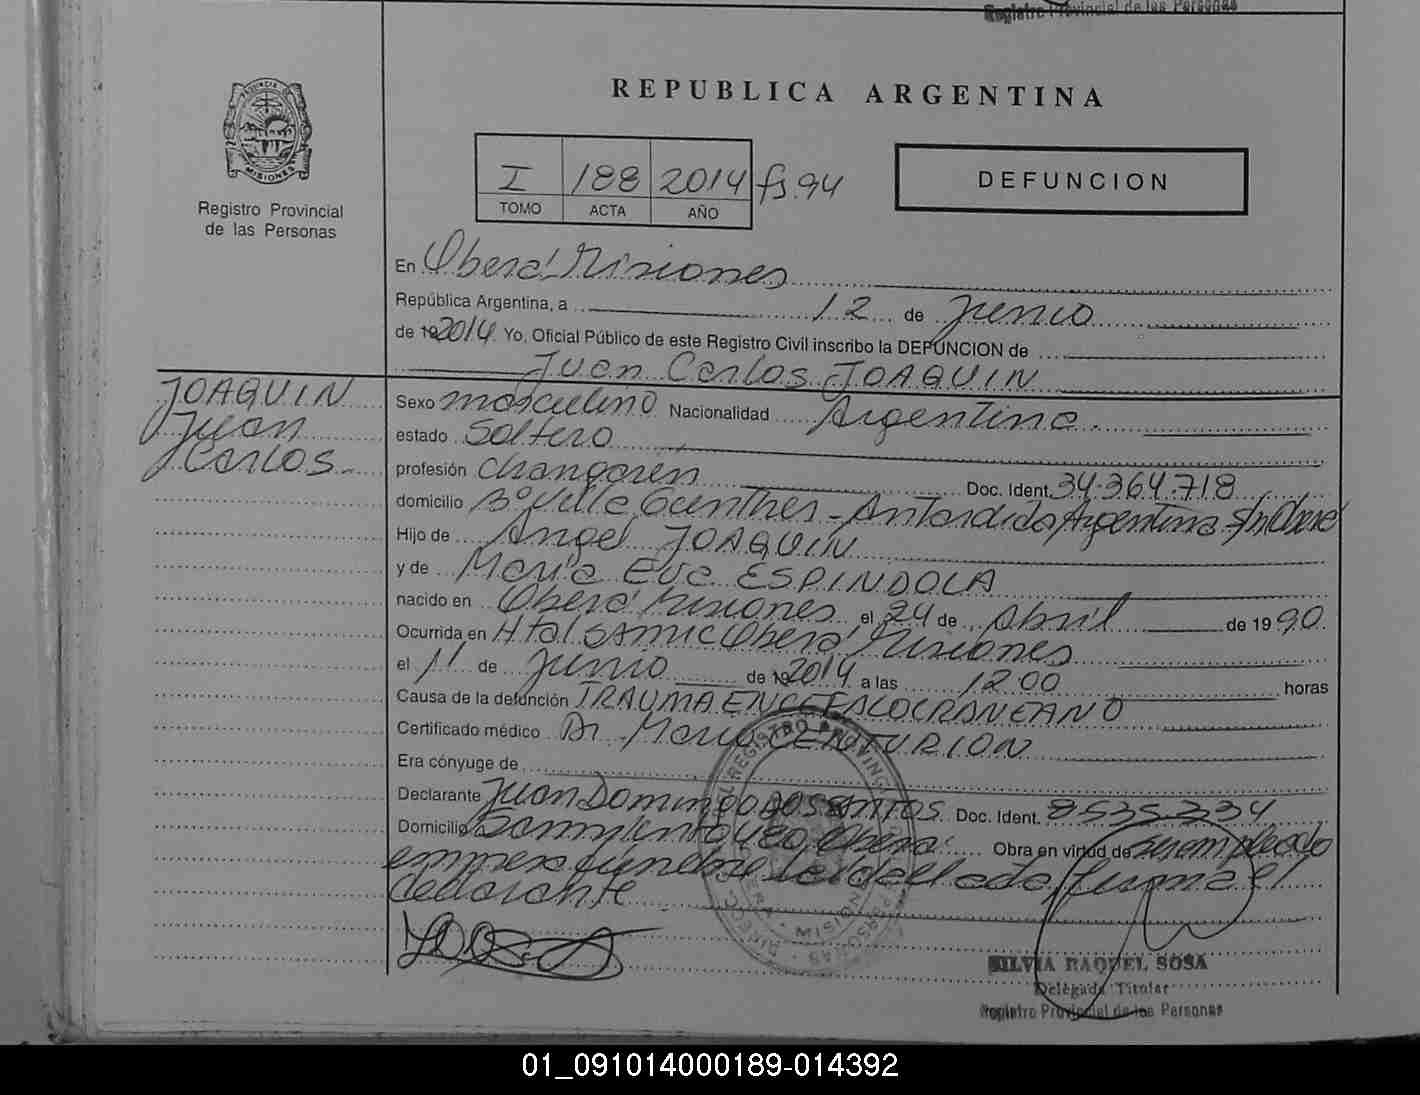 Registro Provincial de las Personas
REPUBLICA ARGENTINA
PROVINCIA DE
MISIONES
Registro Provincial
de las Personas
I 188 2014 fs. 94
TOMO ACTA AÑO
DEFUNCION
En Oberá Misiones
República Argentina, a 12 de Junio
de 19 2014. Yo, Oficial Público de este Registro Civil inscribo la DEFUNCION de
Juan Carlos JOAQUIN
JOAQUIN
Juan
Carlos
Sexo masculino Nacionalidad Argentina.
estado Soltero
profesión changarín Doc. Ident. 34.364.718
domicilio Bº Villa Gunther - Antártida Argentina s/n Oberá
Hijo de Angel JOAQUIN
y de María Eva ESPINDOLA
nacido en Oberá Misiones el 24 de Abril de 1990.
Ocurrida en Htal SAMIC Oberá Misiones
el 11 de Junio de 19 2014 a las 12 00 horas
Causa de la defunción TRAUMA ENCEFALOCRANEANO
Certificado médico Dr. Mario CENTURION
Era cónyuge de
Declarante Juan Domingo DOS SANTOS Doc. Ident. 8535334
Domicilio Sarmiento Oberá Obra en virtud de ser empleado
empresa fúnebre leída el acta firma el
declarante
REGISTRO PROVINCIAL
PERSONAS
SILVIA RAQUEL SOSA
Delegada Titular
Registro Provincial de las Personas
01_091014000189-014392